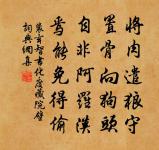 將肉遣狼守
置骨向狗頭
自非阿羅漢
焉能免得偷
裴玄智書化度藏院壁
詞典網集